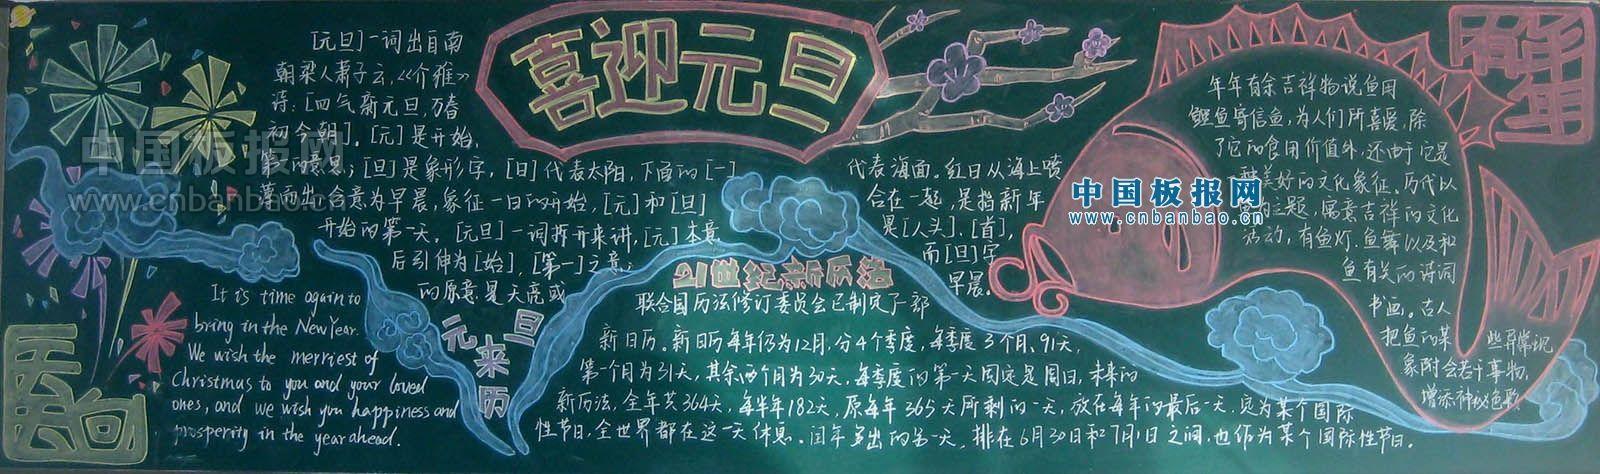 喜迎元旦
[元旦]一词出自南
朝梁人萧子云,《介雅》
诗:[四气新元旦,万春
初今朝]。[元]是开始,
第一的意思;[旦]是象形字,[日]代表太阳,下面的[一]
合意为早晨,象征一日的开始,[元]和[旦]
开始的第一天。[元旦]一词拆开来讲,[元]本意
后引伸为[始],[第一]之意;
的原意是天亮或
代表海面。红日从海上喷
合在一起,是指新年
是[人头]、[首],
而[旦]字
早晨。
元旦
来历
It is time again to
bring in the New Year.
We wish the merriest of
Christmas to you and your loved
ones, and we wish you happiness and
prosperity in the year ahead.
21世纪新历法
联合国历法修订委员会已制定了一部
新日历。新日历每年仍为12月,分4个季度,每季度3个月、91天,
第一个月为31天,其余两个月为30天,每季度的第一天固定是周日,未来的
新历法,全年共364天,每半年182天,原每年365天所剩的一天,放在每年的最后一天,定为某个国际
性节日,全世界都在这一天休息。闰年多出的另一天,排在6月30日和7月1日之间,也作为某个国际性节日。
年年有余吉祥物说鱼用
鲤鱼寄信鱼,为人们所喜爱,除
了它的食用价值外,还由于它是
美好的文化象征。历代以
主题,寓意吉祥的文化
活动,有鱼灯、鱼舞以及和
鱼有关的诗词
书画。古人
把鱼的某
些异常现
象附会若干事物,
增添神秘色彩
中国板报网
www.cnbanbao.cn
中国板报网
www.cnbanbao.cn